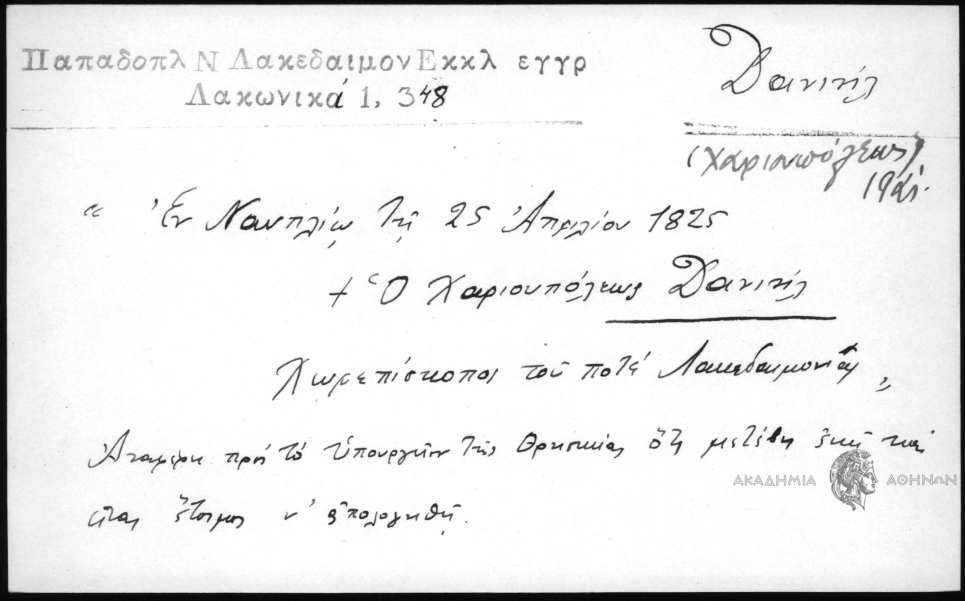 Παπαδοπλ Ν Λακεδαιμον Εκκλ εγγρ
Λακωνικά 1, 348
Δανιήλ
(Χαριουπόλεως)
" Ἐν Ναυπλίῳ τῇ 25 Ἀπριλίου 1825
+ Ὁ Χαριουπόλεως Δανιήλ
Χωρεπίσκοπος τοῦ ποτέ Λακεδαιμονίας "
Ἀναφέρει πρός τό Ὑπουργεῖον τῆς Θρησκείας ὅτι μετέβη ἐκεῖ καί
εἶναι ἕτοιμος ν' ἀπολογηθῇ.
ΑΚΑΔΗΜΙΑ ΑΘΗΝΩΝ